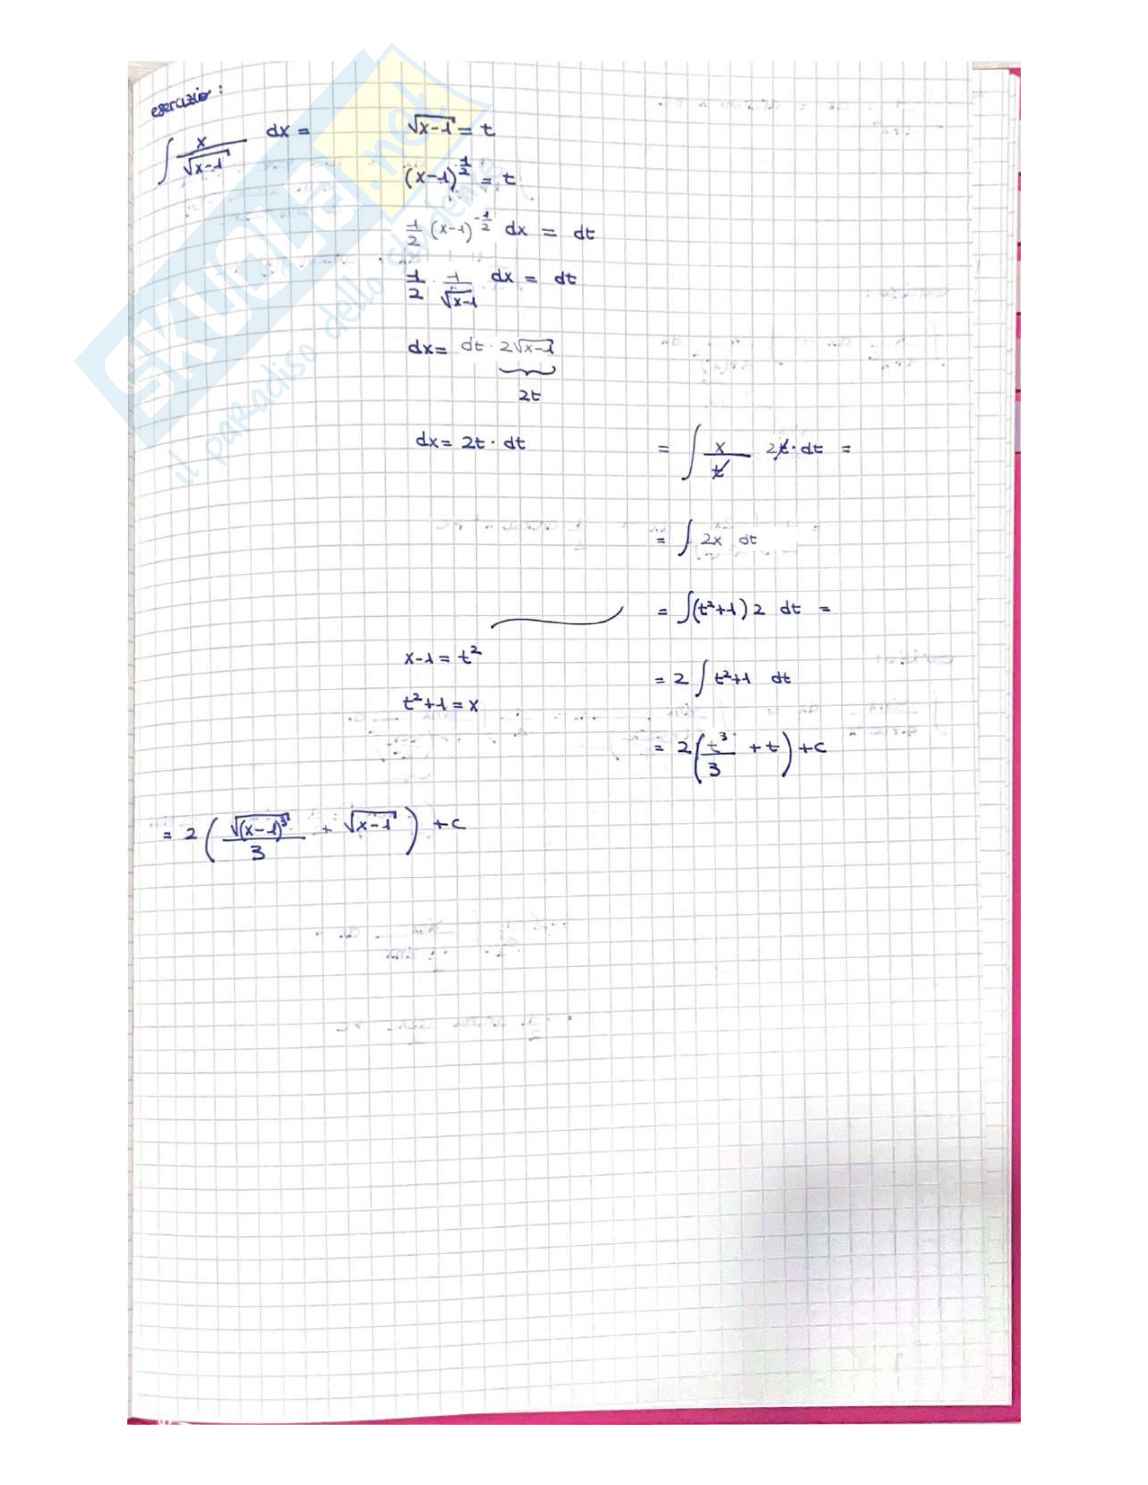 esercizio:
∫ x/√(x-1) dx =
√(x-1) = t
(x-1)^(1/2) = t
1/2 (x-1)^(-1/2) dx = dt
1/2 · 1/√(x-1) dx = dt
dx = dt · 2√(x-1)
2t
dx = 2t · dt
= ∫ x/t 2t · dt =
= ∫ 2x dt
= ∫(t²+1) 2 dt =
x-1 = t²
t²+1 = x
= 2 ∫ t²+1 dt
= 2(t³/3 + t) + c
= 2(√(x-1)³/3 + √(x-1)) + c
SKUOLA.net
il paradiso dello studente